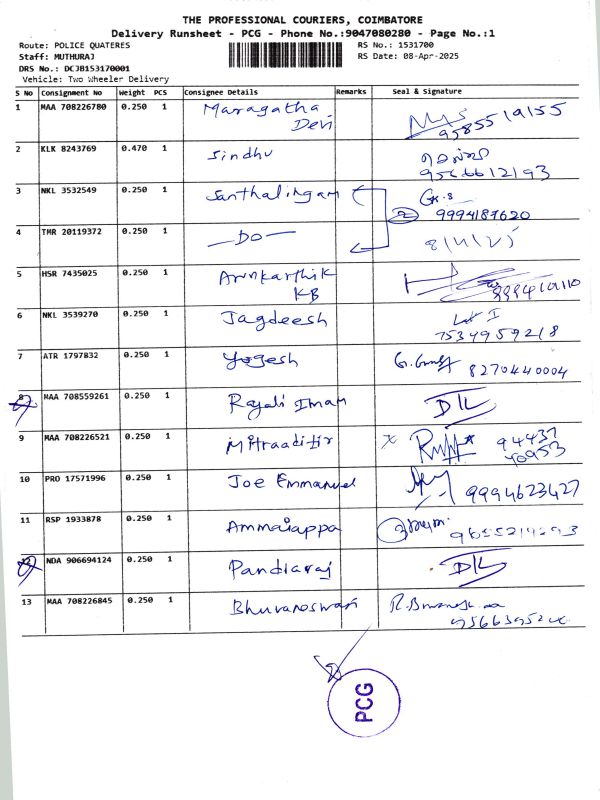 THE PROFESSIONAL COURIERS, COIMBATORE
Delivery Runsheet - PCG - Phone No.:9047080280 - Page No.:1
Route: POLICE QUATERES RS No.: 1531700
Staff: MUTHURAJ RS Date: 08-Apr-2025
DRS No.: DCJB153170001
Vehicle: Two Wheeler Delivery
S No Consignment No Weight PCS Consignee Details Remarks Seal & Signature
1 MAA 708226780 0.250 1 Maragatha
Devi 9585519155
2 KLK 8243769 0.470 1 Sindhu
9566612193
3 NKL 3532549 0.250 1 Santhalingam 2 GK.S
9994187620
4 TMR 20119372 0.250 1 —DO— 8/4/25
5 HSR 7435025 0.250 1 Arunkarthik
KB
6 NKL 3539270 0.250 1 Jagdeesh
7534959218
7 ATR 1797832 0.250 1 Yogesh 8270440004
8 MAA 708559261 0.250 1 Rayali Imam DIL
9 MAA 708226521 0.250 1 Mitraaditir x 94437
40953
10 PRO 17571996 0.250 1 Joe Emmanuel 9994623427
11 RSP 1933878 0.250 1 Ammaiappa
12 NDA 906694124 0.250 1 Pandiaraj DIL
13 MAA 708226845 0.250 1 Bhuvaneswari
PCG